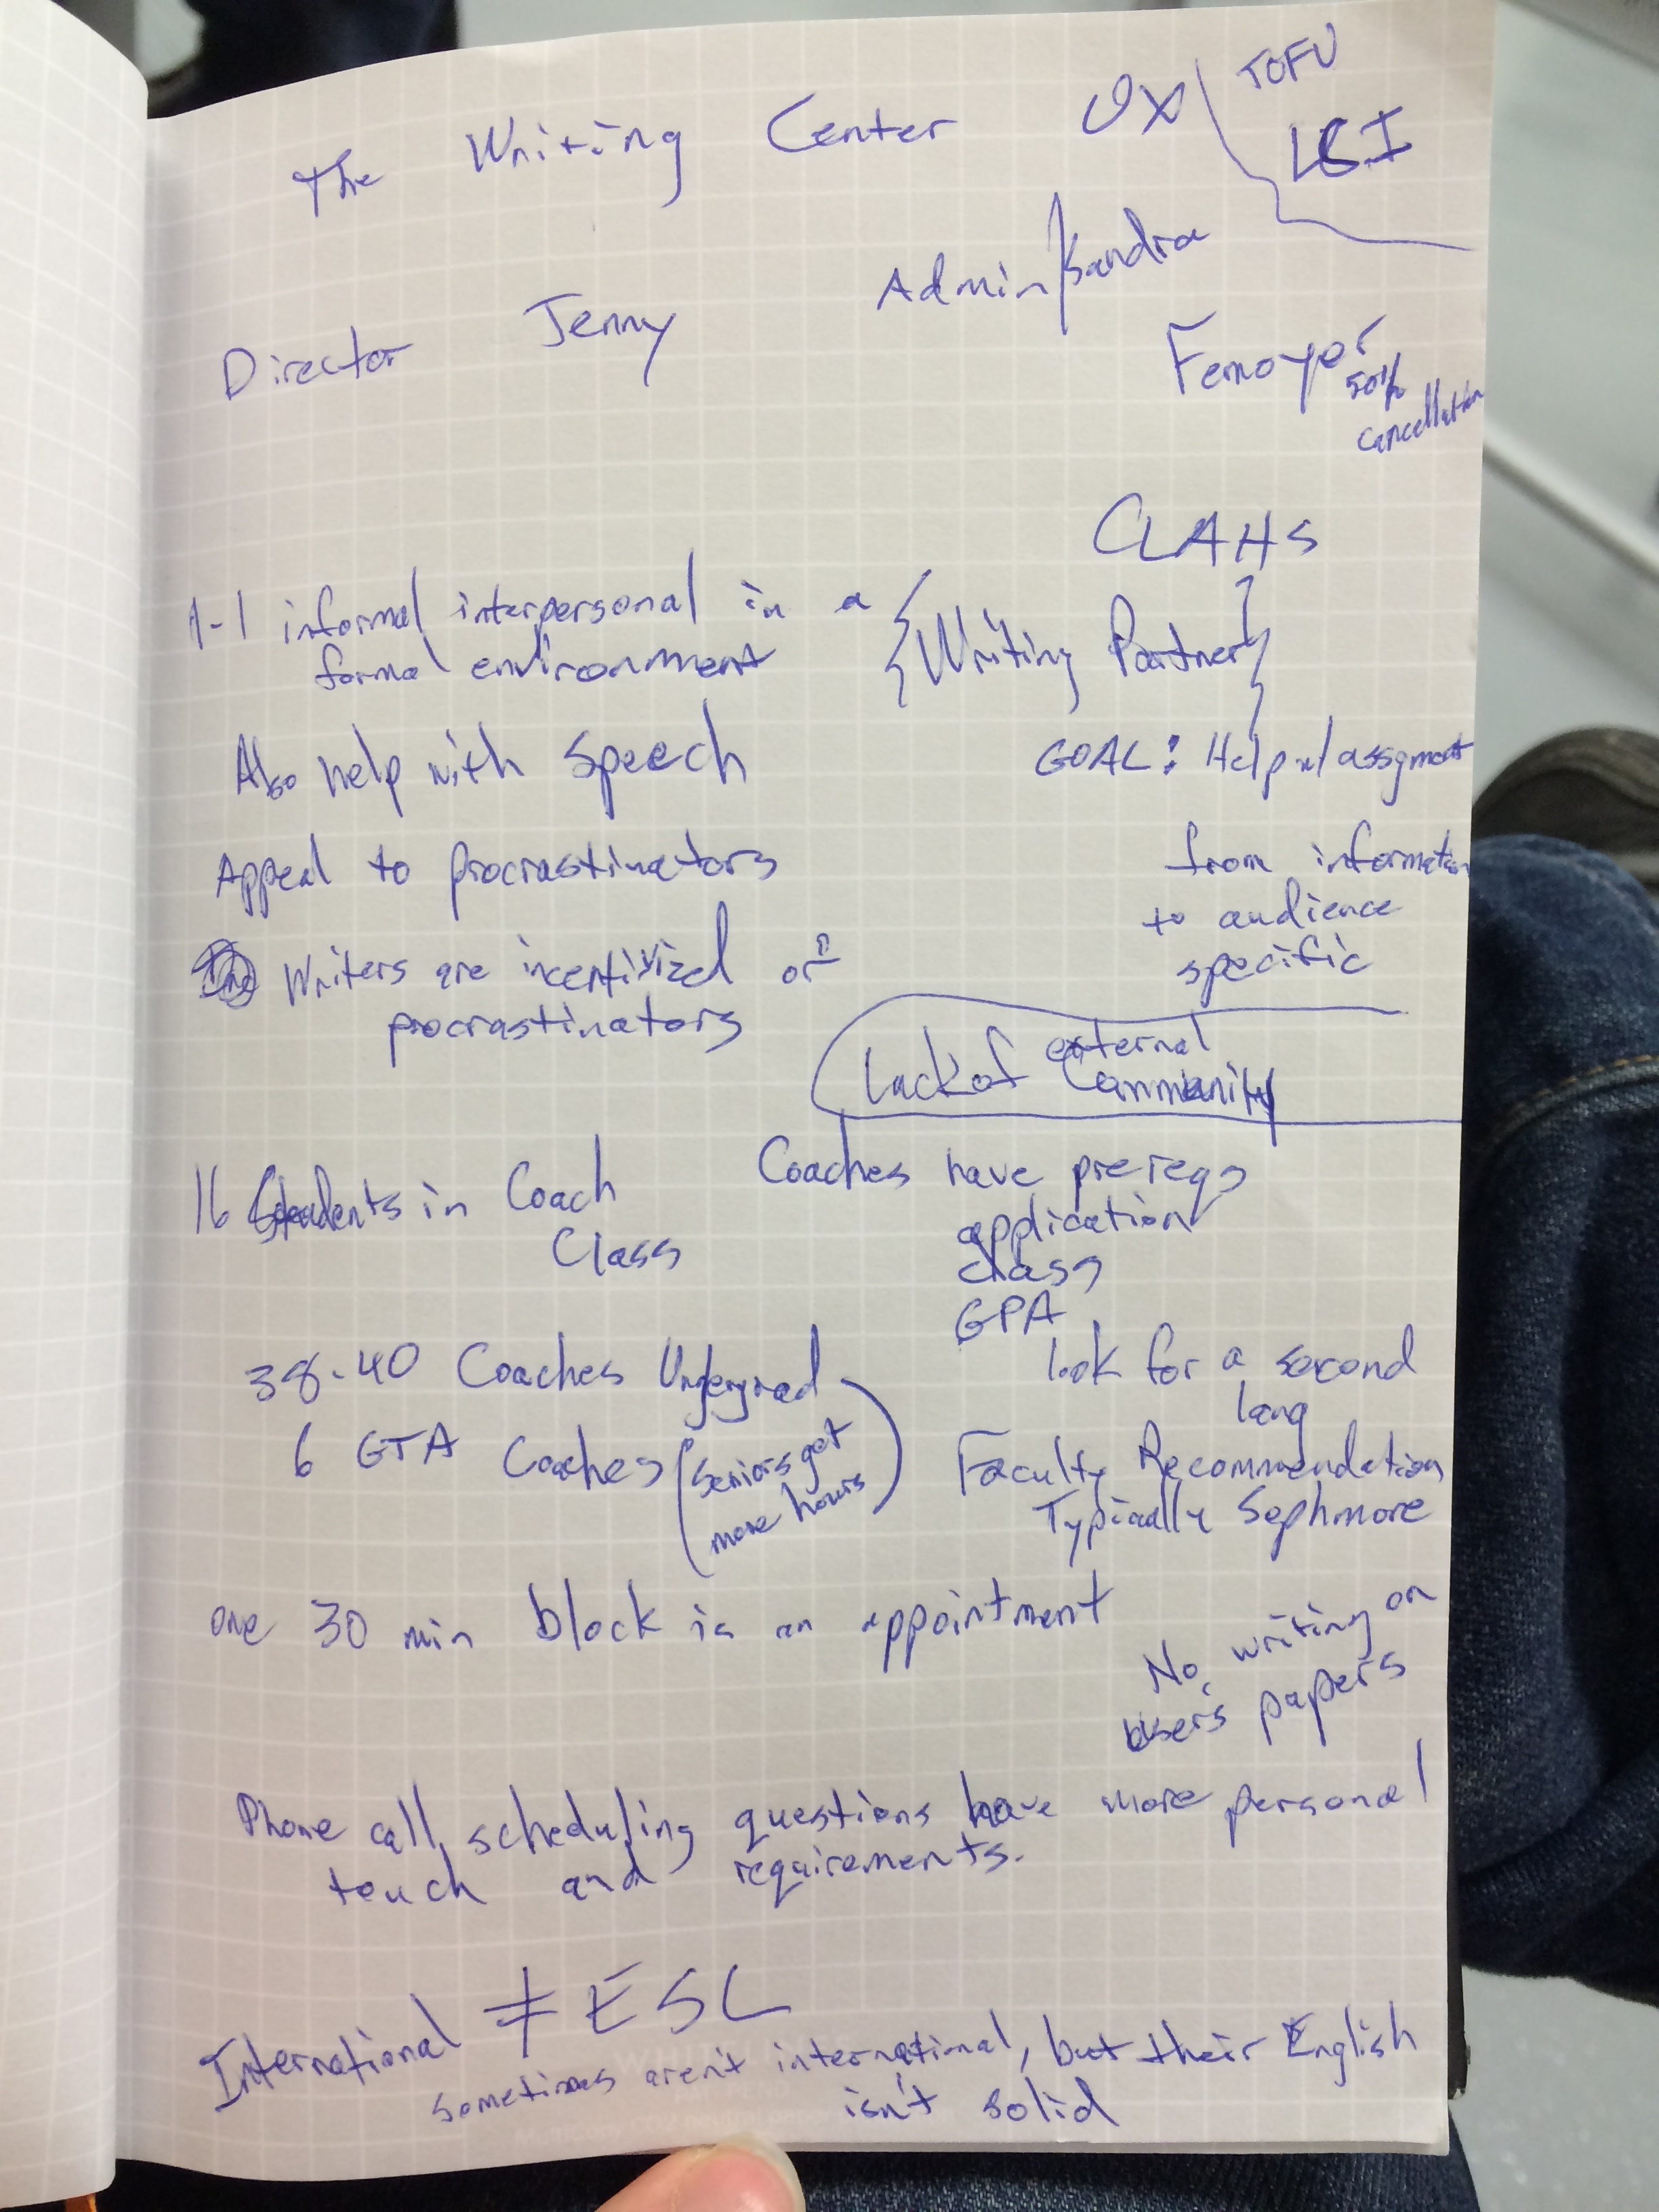 The Writing Center UX
TOFU
LCI
Director Jenny Admin/Sandra
Femoyer
50%
cancellation
CLAHS
1-1 informal interpersonal in a
formal environment
{Writing Partner}
Also help with speech
GOAL: Help w/ assgment
from information
to audience
specific
Appeal to procrastinators
Writers are incentivized or
procrastinators
Lack of external
Community
16 Students in Coach
Class
Coaches have prereqs
application
class
GPA
look for a second
lang
Faculty Recommendation
Typically Sophmore
38-40 Coaches Undergrad
6 GTA Coaches
(seniors get
more hours)
one 30 min block is an appointment
No writing on
user's papers
Phone call, scheduling questions have more personal
touch and requirements.
International ≠ ESL
sometimes aren't international, but their English
isn't solid